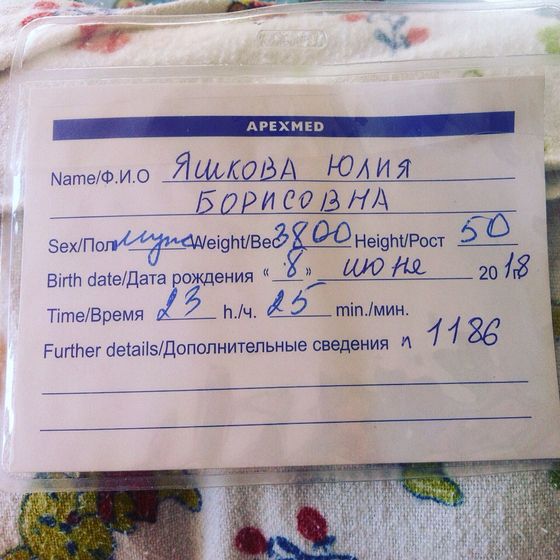 APEXMED
Name/Ф.И.О Яшкова Юлия
Борисовна
Sex/Пол муж Weight/Вес 3800 Height/Рост 50
Birth date/Дата рождения « 8 » июне 2018г.
Time/Время 23 h./ч. 25 min./мин.
Further details/Дополнительные сведения п 1186